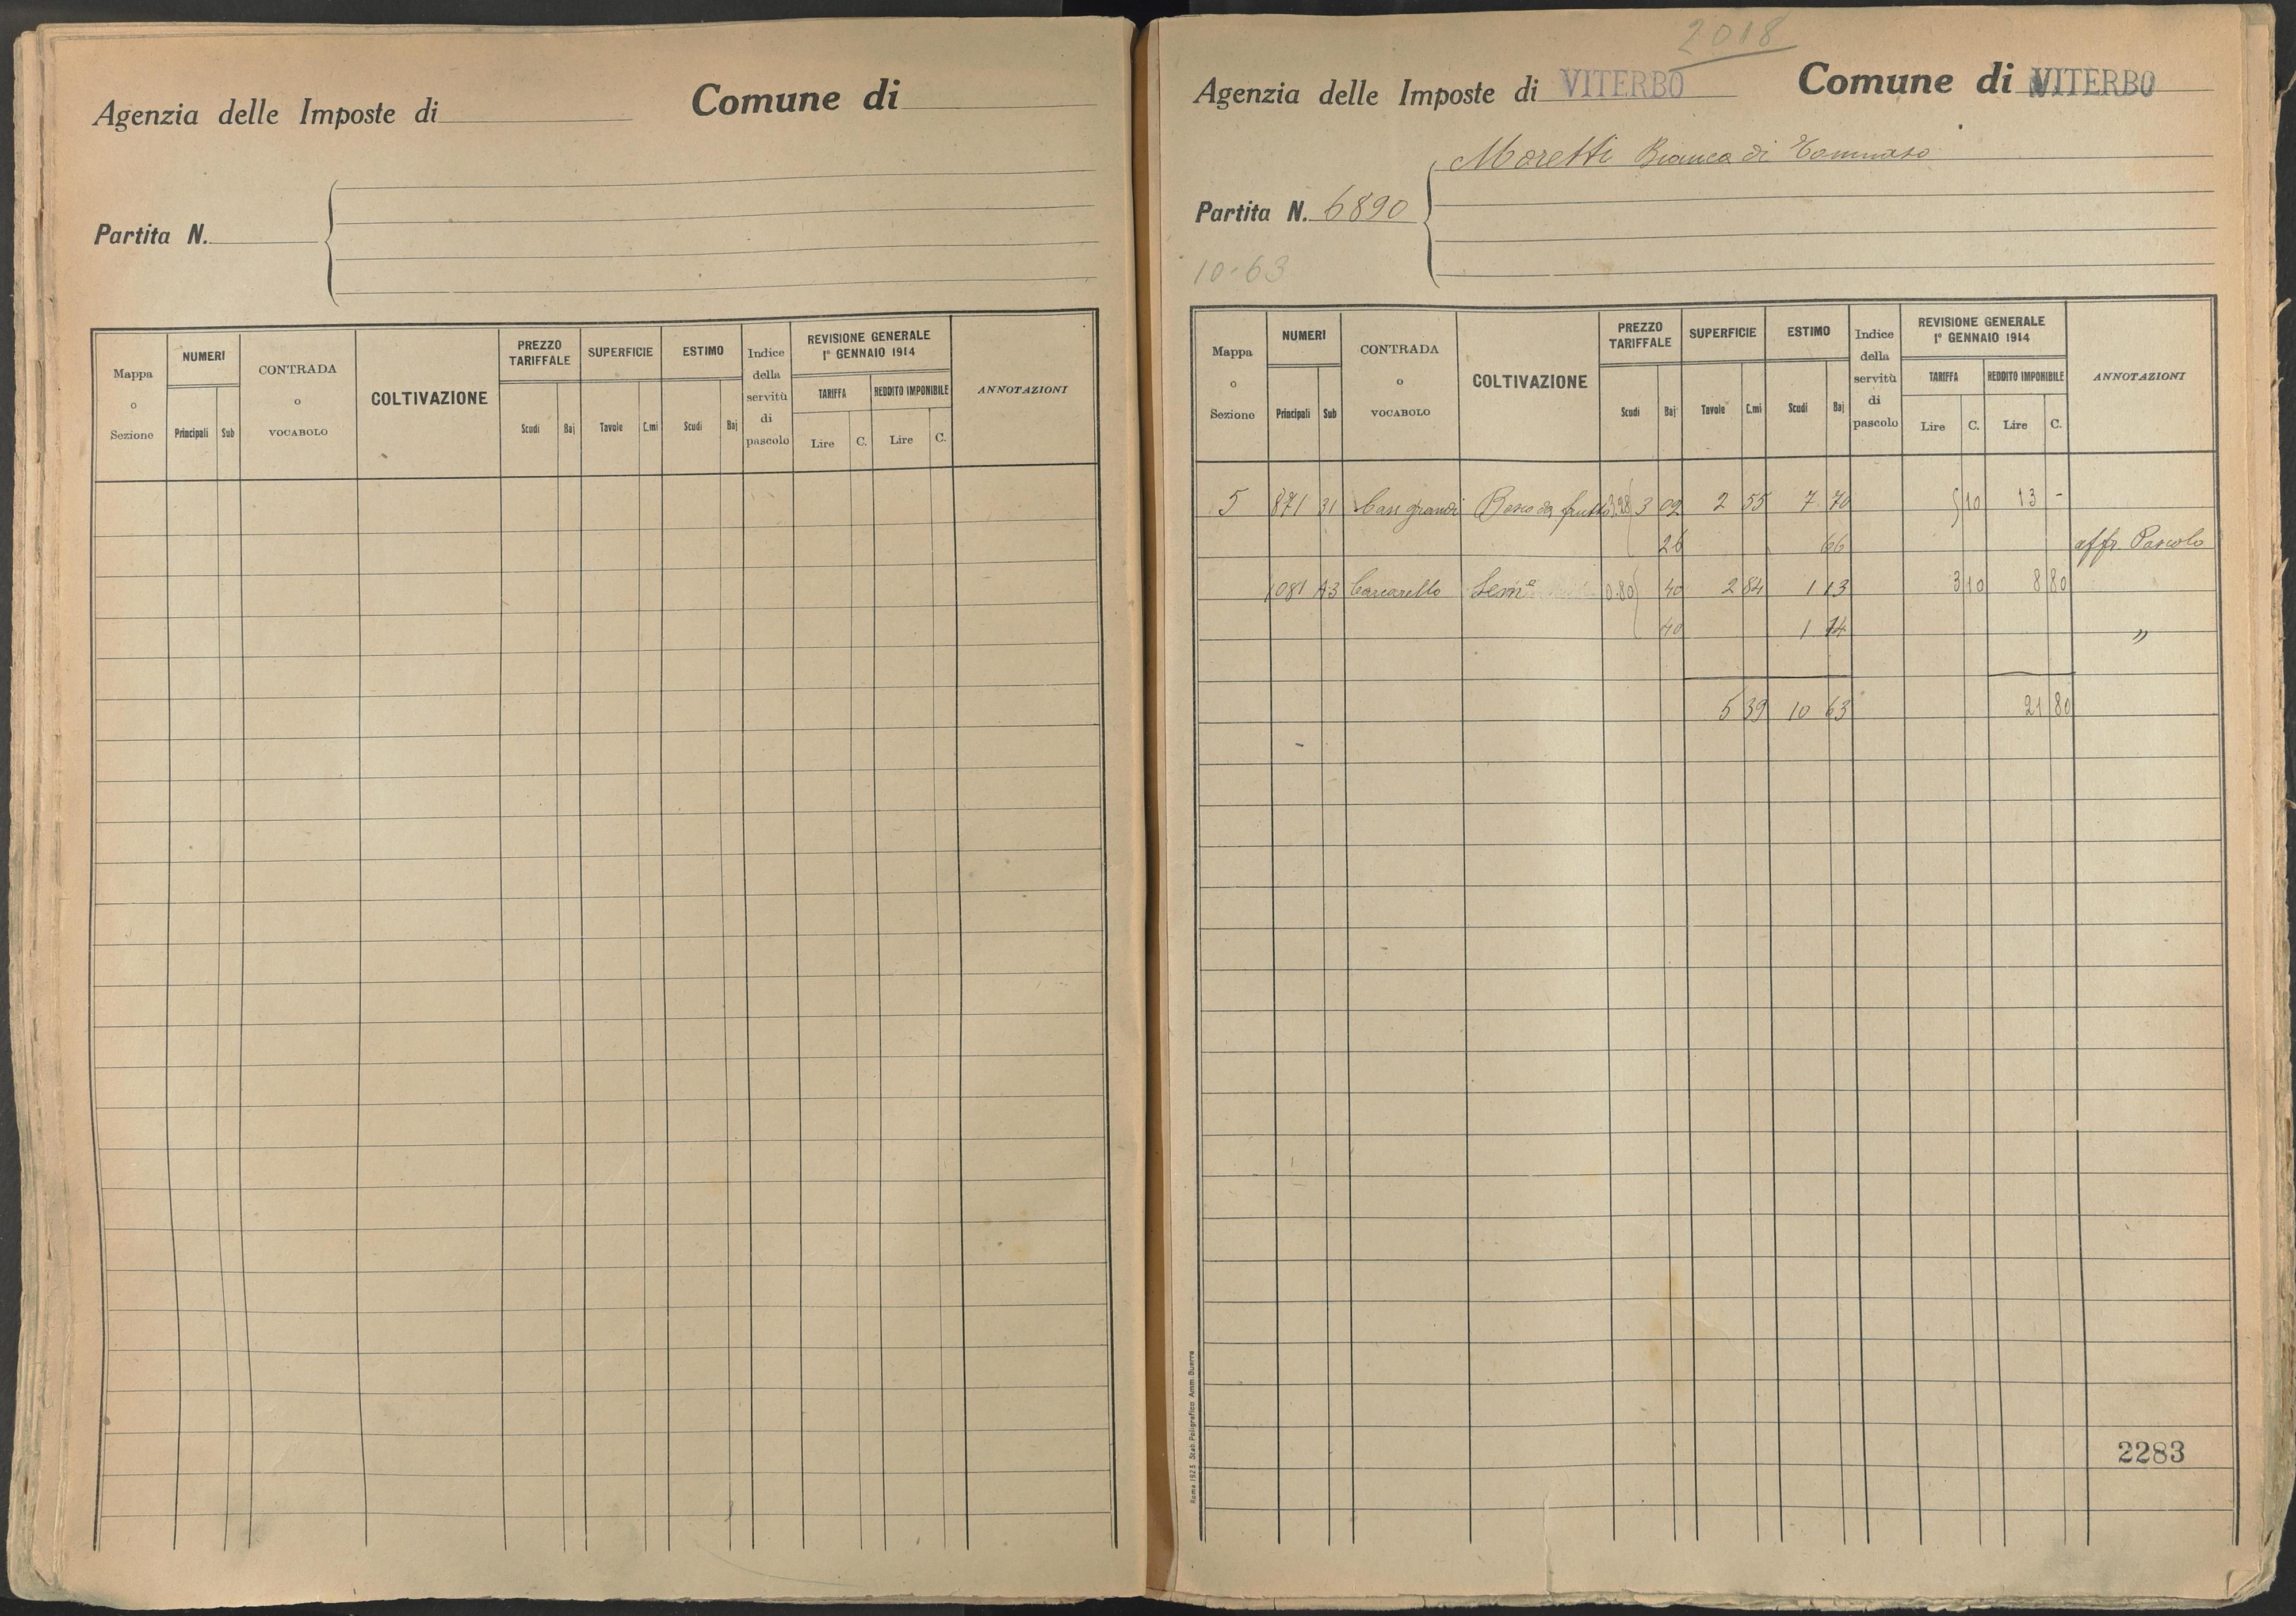 Agenzia delle Imposte di
Comune di
Partita N.
Mappa o Sezione
NUMERI
Principali Sub
CONTRADA o VOCABOLO
COLTIVAZIONE
PREZZO TARIFFALE
Scudi Baj
SUPERFICIE
Tavole C.mi
ESTIMO
Scudi Baj
Indice della servitù di pascolo
REVISIONE GENERALE
1° GENNAIO 1914
TARIFFA
Lire C.
REDDITO IMPONIBILE
Lire C.
ANNOTAZIONI
2018
Agenzia delle Imposte di VITERBO
Comune di VITERBO
Moretti Bianca di Tommaso
Partita N. 6890
10-63
Mappa o Sezione
NUMERI
Principali Sub
CONTRADA o VOCABOLO
COLTIVAZIONE
PREZZO TARIFFALE
Scudi Baj
SUPERFICIE
Tavole C.mi
ESTIMO
Scudi Baj
Indice della servitù di pascolo
REVISIONE GENERALE
1° GENNAIO 1914
TARIFFA
Lire C.
REDDITO IMPONIBILE
Lire C.
ANNOTAZIONI
5 871 31 grandi Bosco da frutto 3.28 3 02 2 55 7 70 5 10 13 -
26 66 affr. Pascolo
1081 A3 Carcarello Sem.e 0.80 40 2 84 1 13 3 10 8 80
40 1 14 "
5 39 10 63 21 80
2283
Roma 1925 Stab. Poligrafico Amm. Guerra